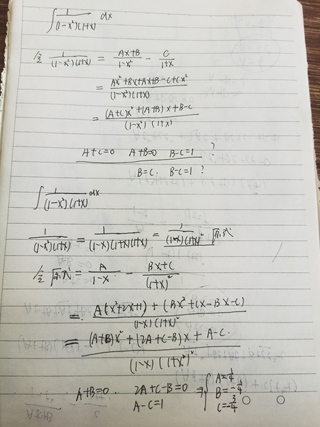 ∫ 1/((1-x²)(1+x)) dx
1/((1-x²)(1+x)) = (Ax+B)/(1-x²) - C/(1+x)
= (Ax²+Bx+Ax+B-C+Cx²)/((1-x²)(1+x))
= ((A+C)x²+(A+B)x+B-C)/((1-x²)(1+x))
A+C=0 A+B=0 B-C=1 ?
B=C. B-C=1 ?
∫ 1/((1-x²)(1+x)) dx
1/((1-x²)(1+x)) = 1/((1-x)(1+x)(1+x)) = 1/((1-x)(1+x)²) 原式
令 原式 = A/(1-x) - (Bx+C)/(1+x)²
= (A(x²+2x+1) + (Bx²+Cx-Bx-C))/((1-x)(1+x)²)
= ((A+B)x²+(2A+C-B)x+A-C)/((1-x)(1+x)²)
A+B=0 2A+C-B=0 ⇒ { A=1/4
A-C=1 B=-1/4
C=-3/4